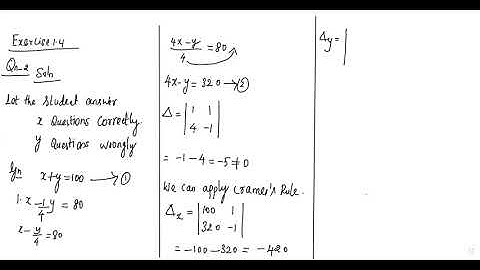 Exercise 1.4
Qn-2 Soln
Let the student answer
x Questions correctly
y Questions wrongly
Gn x+y=100 → ①
1·x -1/4 y = 80
x - y/4 = 80
4x-y/4 = 80
4x-y = 320 → ②
Δ = |1 1|
|4 -1|
= -1-4 = -5 ≠ 0
We can apply Cramer's Rule.
Δx = |100 1|
|320 -1|
= -100-320 = -420
Δy = |